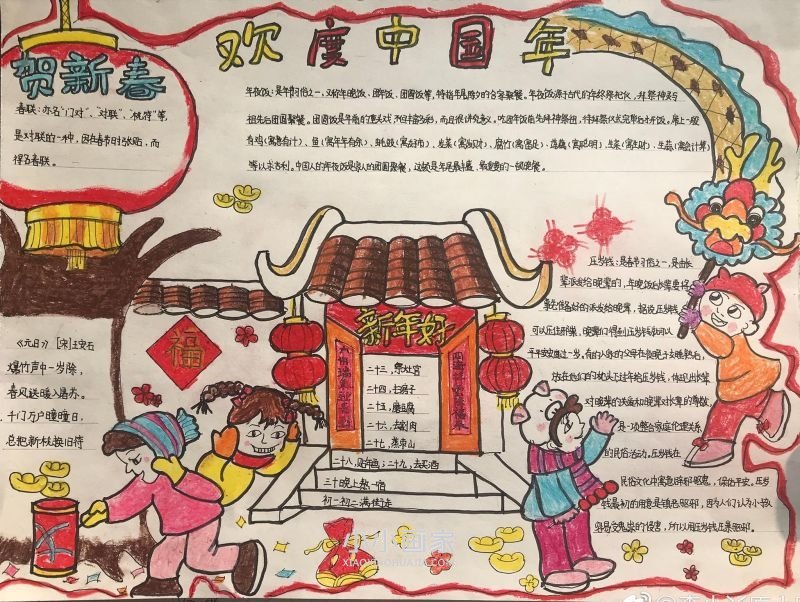 欢度中国年
贺新春
春联：亦名“门对”、“对联”、“桃符”等，
是对联的一种，因在春节时张贴，而
得名春联。
年夜饭：是年前习俗之一，又称年晚饭、团年饭、团圆饭等，特指年尾除夕的合家聚餐。年夜饭源于古代的年终祭祀仪，拜祭神灵与
祖先后团圆聚餐。团圆饭是年前的重头戏，不但丰富多彩，而且很讲究意义。吃团年饭前先拜神祭祖，待拜祭仪式完毕后才开饭。席上一般
有鸡（寓意有计）、鱼（寓年年有余）、蚝豉（寓好市）、发菜（寓发财）、腐竹（寓富足）、莲藕（寓聪明）、生菜（寓生财）、生蒜（寓会计算）
等以求吉利。中国人的年夜饭是家人的团圆聚餐，这顿是年尾最丰盛、最重要的一顿晚餐。
《元日》 [宋]王安石
爆竹声中一岁除，
春风送暖入屠苏。
千门万户曈曈日，
总把新桃换旧符
福
新年好
二十三，祭灶官
二十四，扫房子
二十五，磨豆腐
二十六，去割肉
二十七，蒸枣山
二十八，贴年画；二十九，去买酒
三十晚上熬一宿
初一初二满街走
压岁钱：是春节习俗之一，是由长
辈派发给晚辈的，年晚饭后长辈要将
事先准备好的派发给晚辈，据说压岁钱
可以压住邪祟，晚辈们得到压岁钱就可以
平平安安度过一岁。有的人家的父母在夜晚子女睡熟后，
放在他们的枕头下过年给压岁钱，体现出长辈
对晚辈的关爱和晚辈对长辈的尊敬，
是一项整合家庭伦理关系
的民俗活动。压岁钱在
民俗文化中寓意辟邪驱鬼，保佑平安。压岁
钱最初的用意是镇恶驱邪，因为人们认为小孩
容易受鬼祟的侵害，所以用压岁钱压祟驱邪。
小小画家